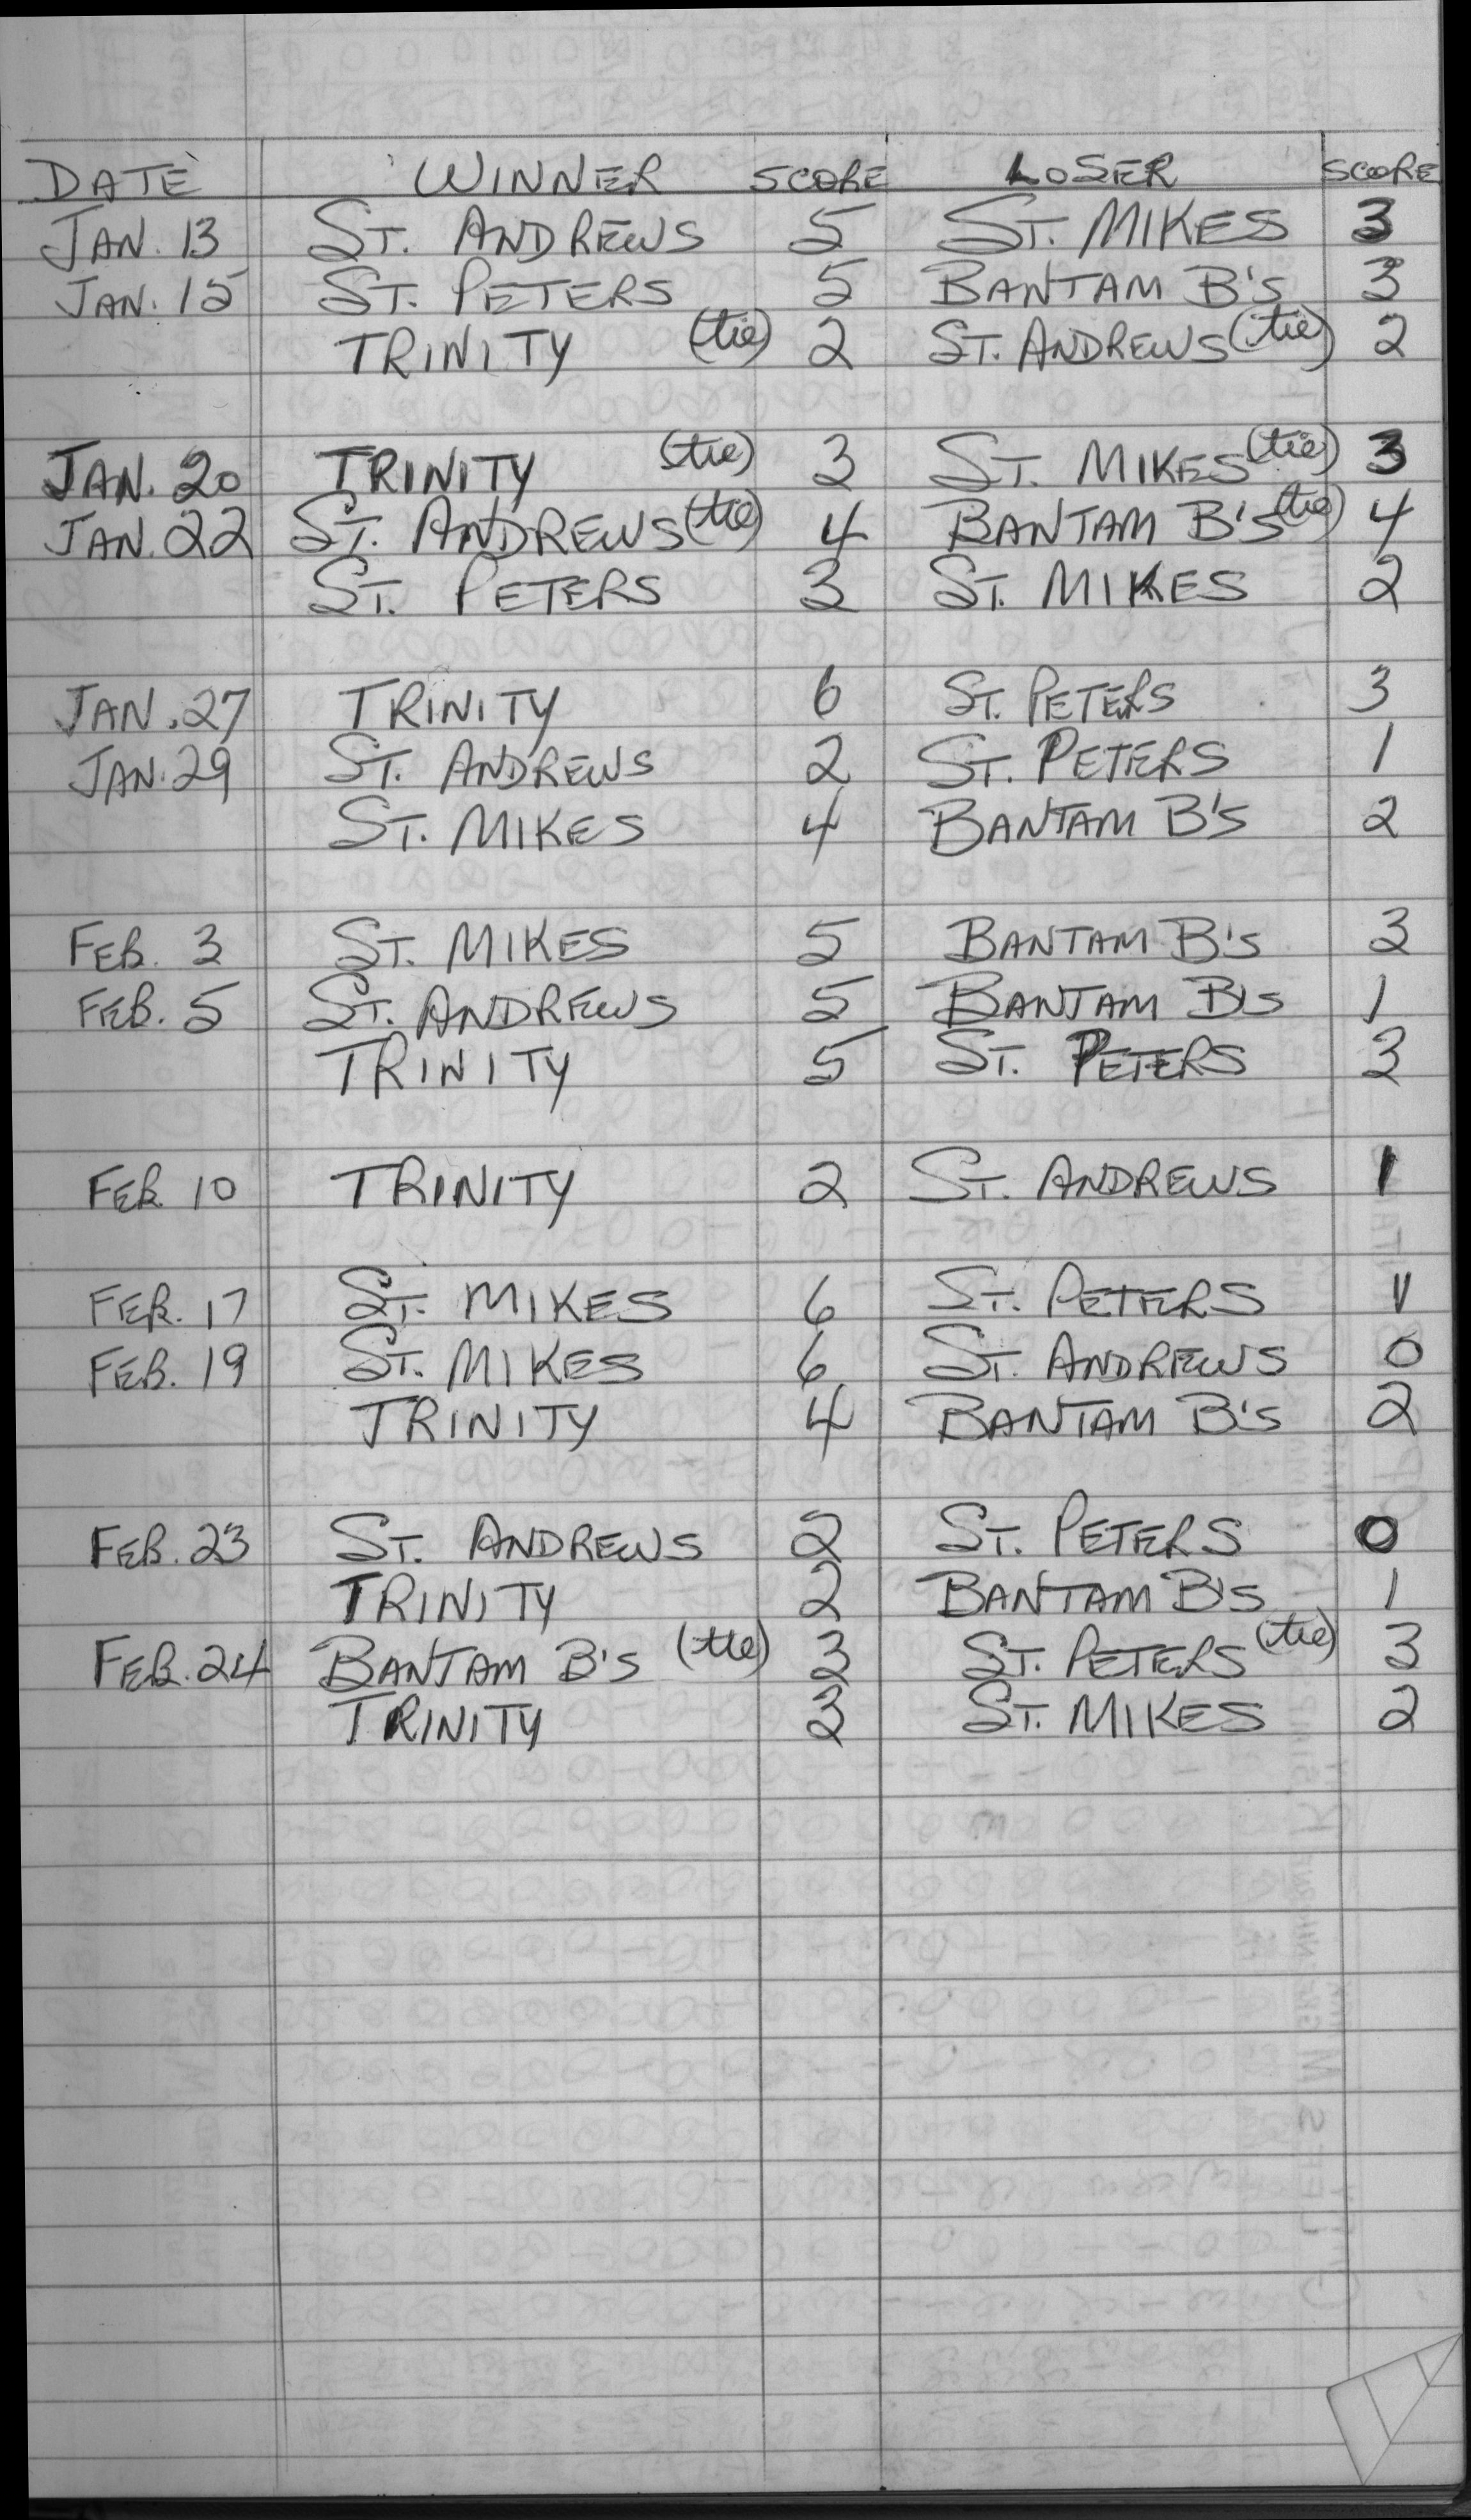 DATE WINNER SCORE LOSER SCORE
JAN. 13 ST. ANDREWS 5 ST. MIKES 3
JAN. 15 ST. PETERS 5 BANTAM B'S 3
TRINITY (tie) 2 ST. ANDREWS (tie) 2
JAN. 20 TRINITY (tie) 3 ST. MIKES (tie) 3
JAN. 22 ST. ANDREWS (tie) 4 BANTAM B'S (tie) 4
ST. PETERS 3 ST. MIKES 2
JAN. 27 TRINITY 6 ST. PETERS 3
JAN. 29 ST. ANDREWS 2 ST. PETERS 1
ST. MIKES 4 BANTAM B'S 2
FEB. 3 ST. MIKES 5 BANTAM B'S 3
FEB. 5 ST. ANDREWS 5 BANTAM B'S 1
TRINITY 5 ST. PETERS 3
FEB. 10 TRINITY 2 ST. ANDREWS 1
FEB. 17 ST. MIKES 6 ST. PETERS
FEB. 19 ST. MIKES 6 ST. ANDREWS 0
TRINITY 4 BANTAM B'S 2
FEB. 23 ST. ANDREWS 2 ST. PETERS 0
TRINITY 2 BANTAM B'S 1
FEB. 24 BANTAM B'S (tie) 3 ST. PETERS (tie) 3
TRINITY 3 ST. MIKES 2